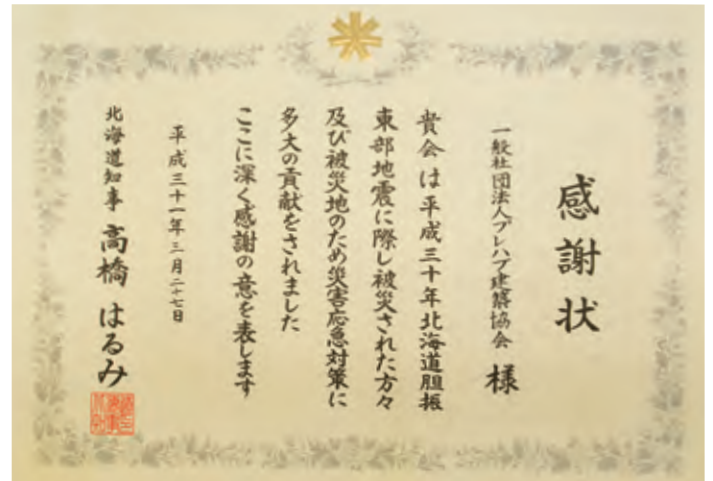 感謝状
一般社団法人プレハブ建築協会 様
貴会は平成三十年北海道胆振
東部地震に際し被災された方々
及び被災地のため災害応急対策に
多大の貢献をされました
ここに深く感謝の意を表します
平成三十一年三月二十七日
北海道知事 高橋 はるみ